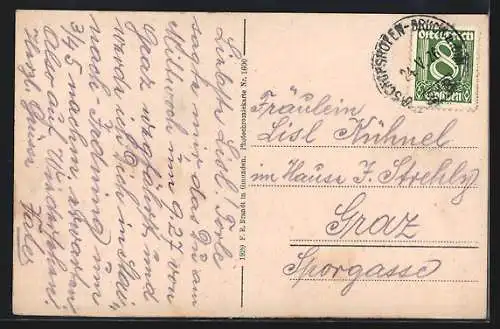 Liebste Lisl!
sagte mir das Du am
Mittwoch um 9.27 von
Graz wegfährst und
werde ich Dich in
nach um
3/45 nachm. erwarten
Also auf Wiedersehen!
Herzl. Grüsse
1809 F. E. Brandt in Gmunden. Photochromiekarte Nr. 1600
BISCHOFSHOFEN-BRUCK
Österreich
8
Groschen
Fräulein
Lisl Kühnel
im Hause F. Strehly
Graz
Sporgasse